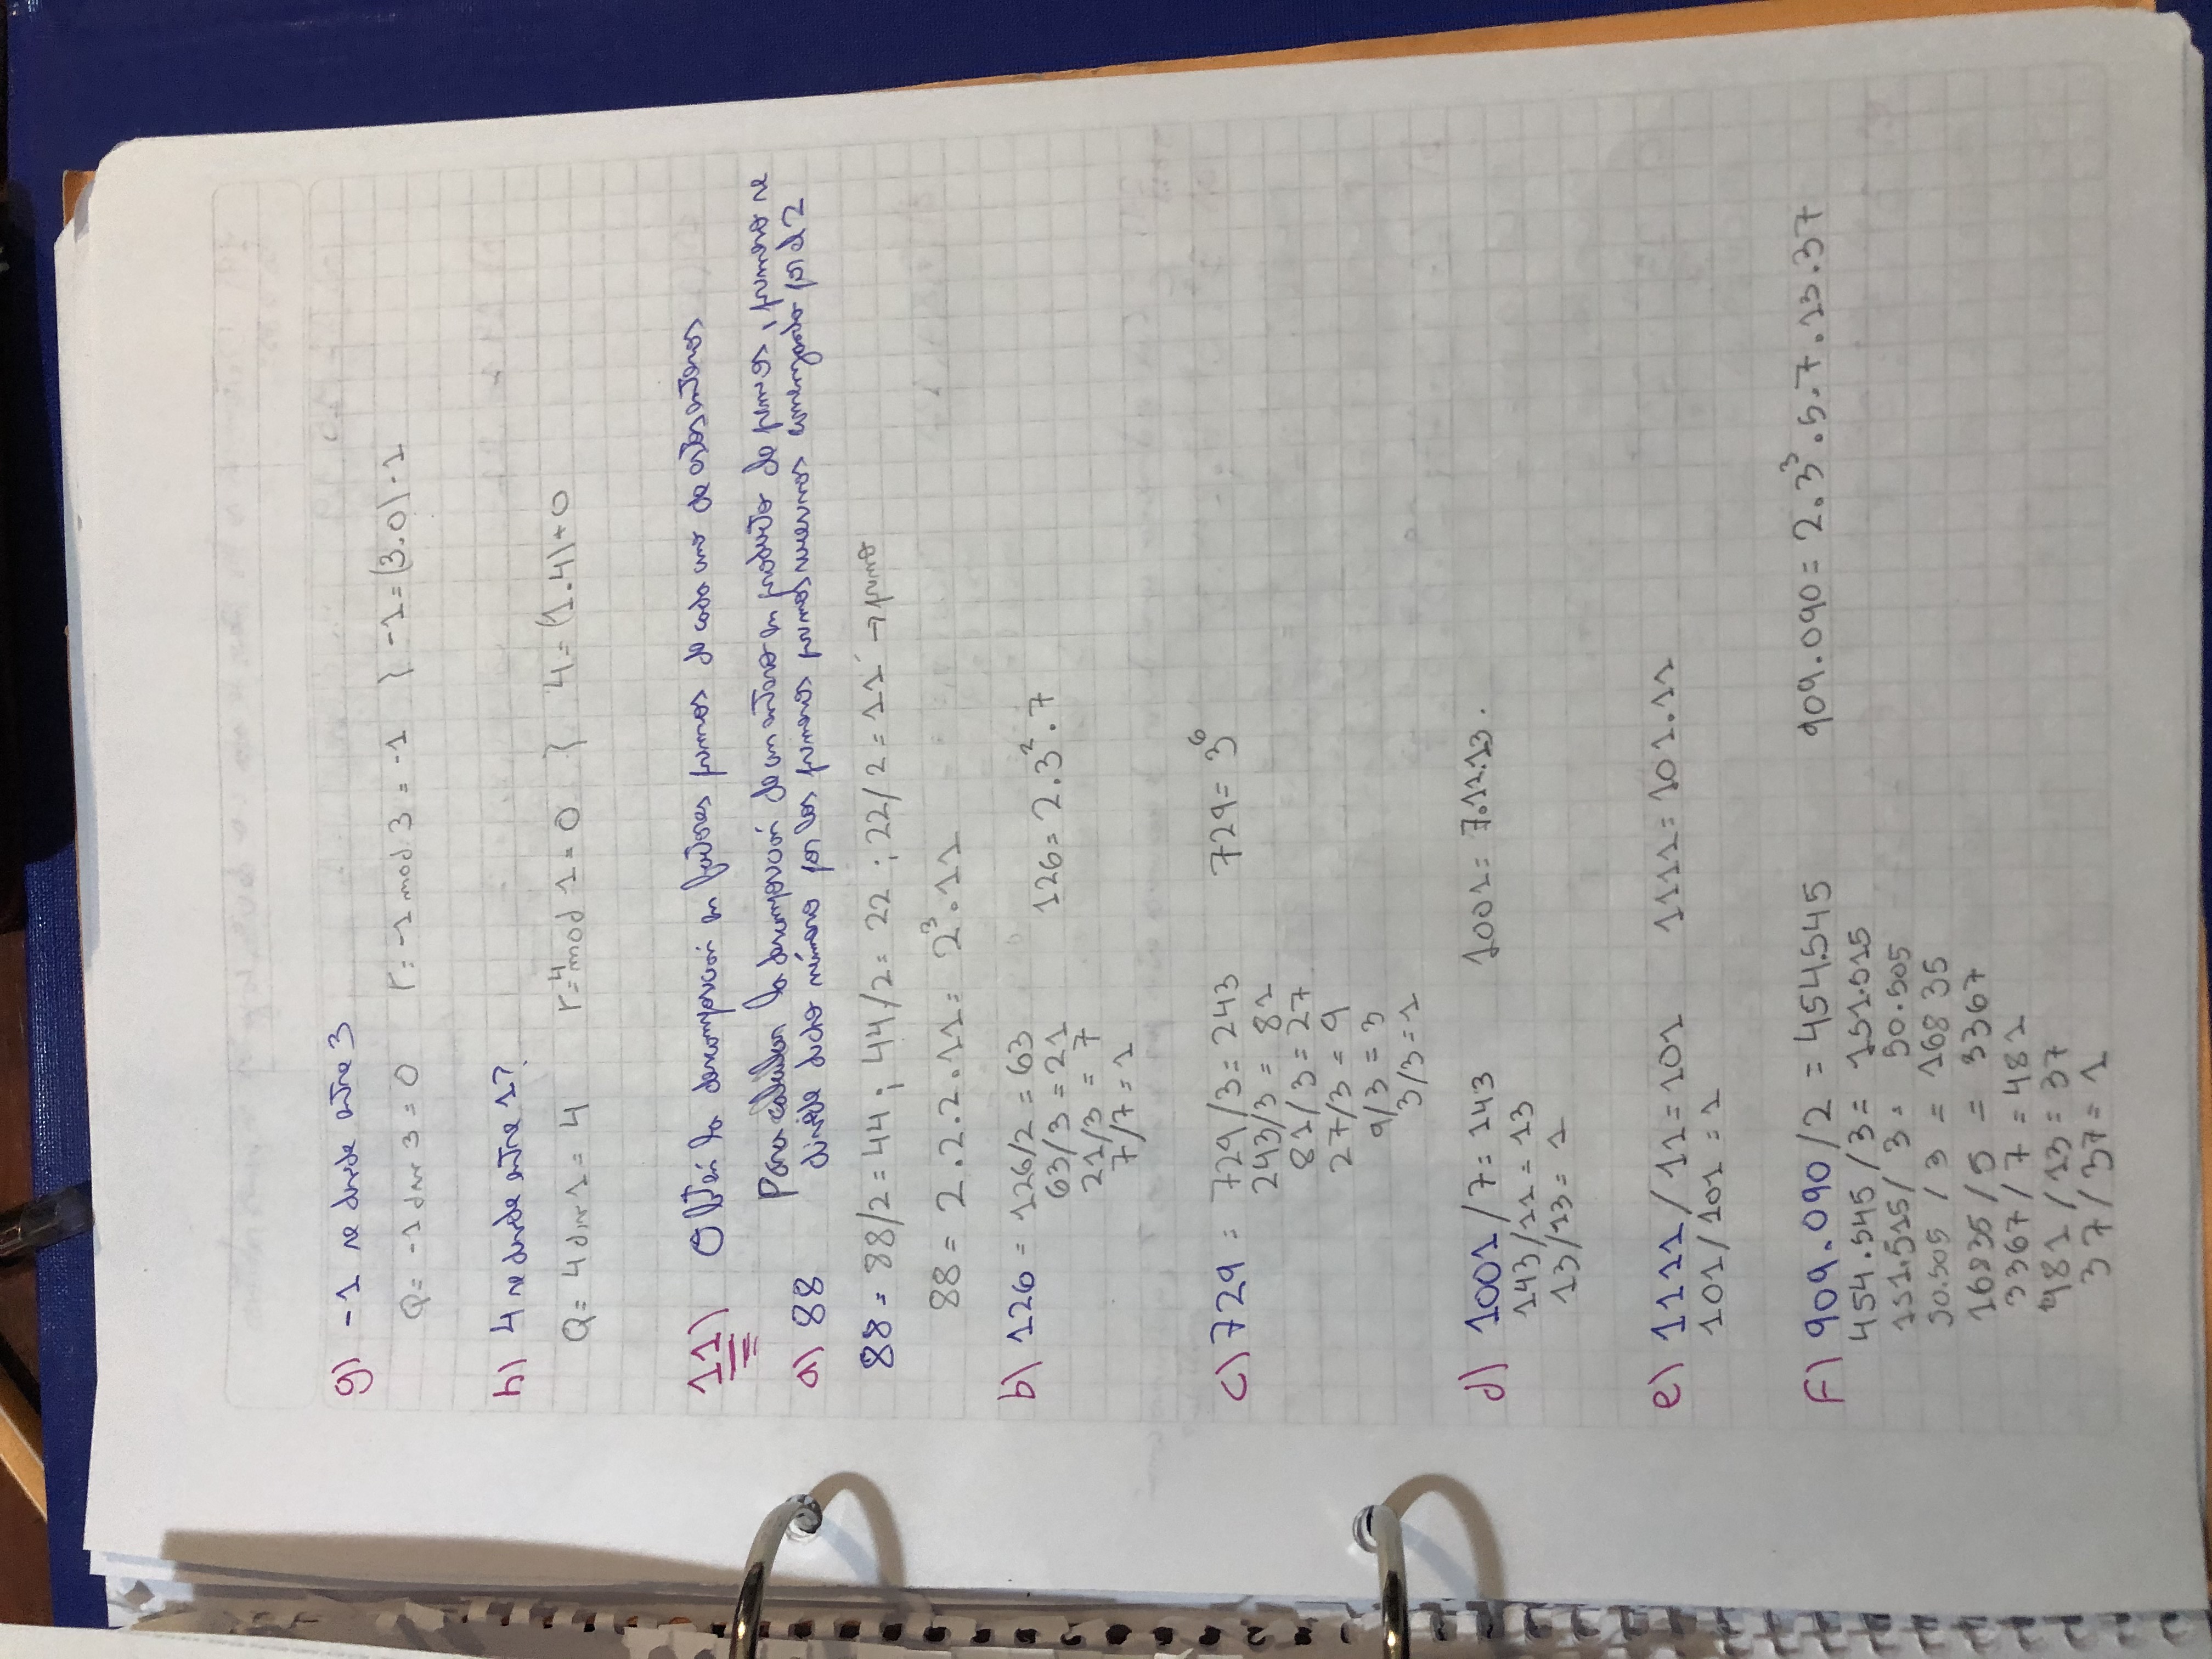 g) -1 se divide entre 3
Q= -1 div 3 = 0 r= -1 mod 3 = -1 } -1=(3.0)-1
h) 4 se divide entre 1?
Q= 4 div 1 = 4 r=4 mod 1 = 0 } 4=(1.4)+0
11) Obtén la descomposición en factores primos de cada uno de estos enteros
Para calcular la descomposición de un entero en producto de primos, primero se
a) 88 divide dicho número por los primeros primos sucesivos comenzando por el 2
88 = 88/2 = 44 ; 44/2 = 22 ; 22/2 = 11 → primo
88 = 2.2.2.11 = 2³.11
b) 126 = 126/2 = 63
63/3 = 21 126 = 2.3².7
21/3 = 7
7/7 = 1
c) 729 = 729/3 = 243 729 = 3⁶
243/3 = 81
81/3 = 27
27/3 = 9
9/3 = 3
3/3 = 1
d) 1001/7 = 143 1001 = 7.11.13.
143/11 = 13
13/13 = 1
e) 1111/11 = 101 1111 = 101.11
101/101 = 1
F) 909.090/2 = 454.545 909.090 = 2.3³.5.7.13.37
454.545/3 = 151.515
151.515/3 = 50.505
50.505/3 = 16835
16835/5 = 3367
3367/7 = 481
481/13 = 37
37/37 = 1